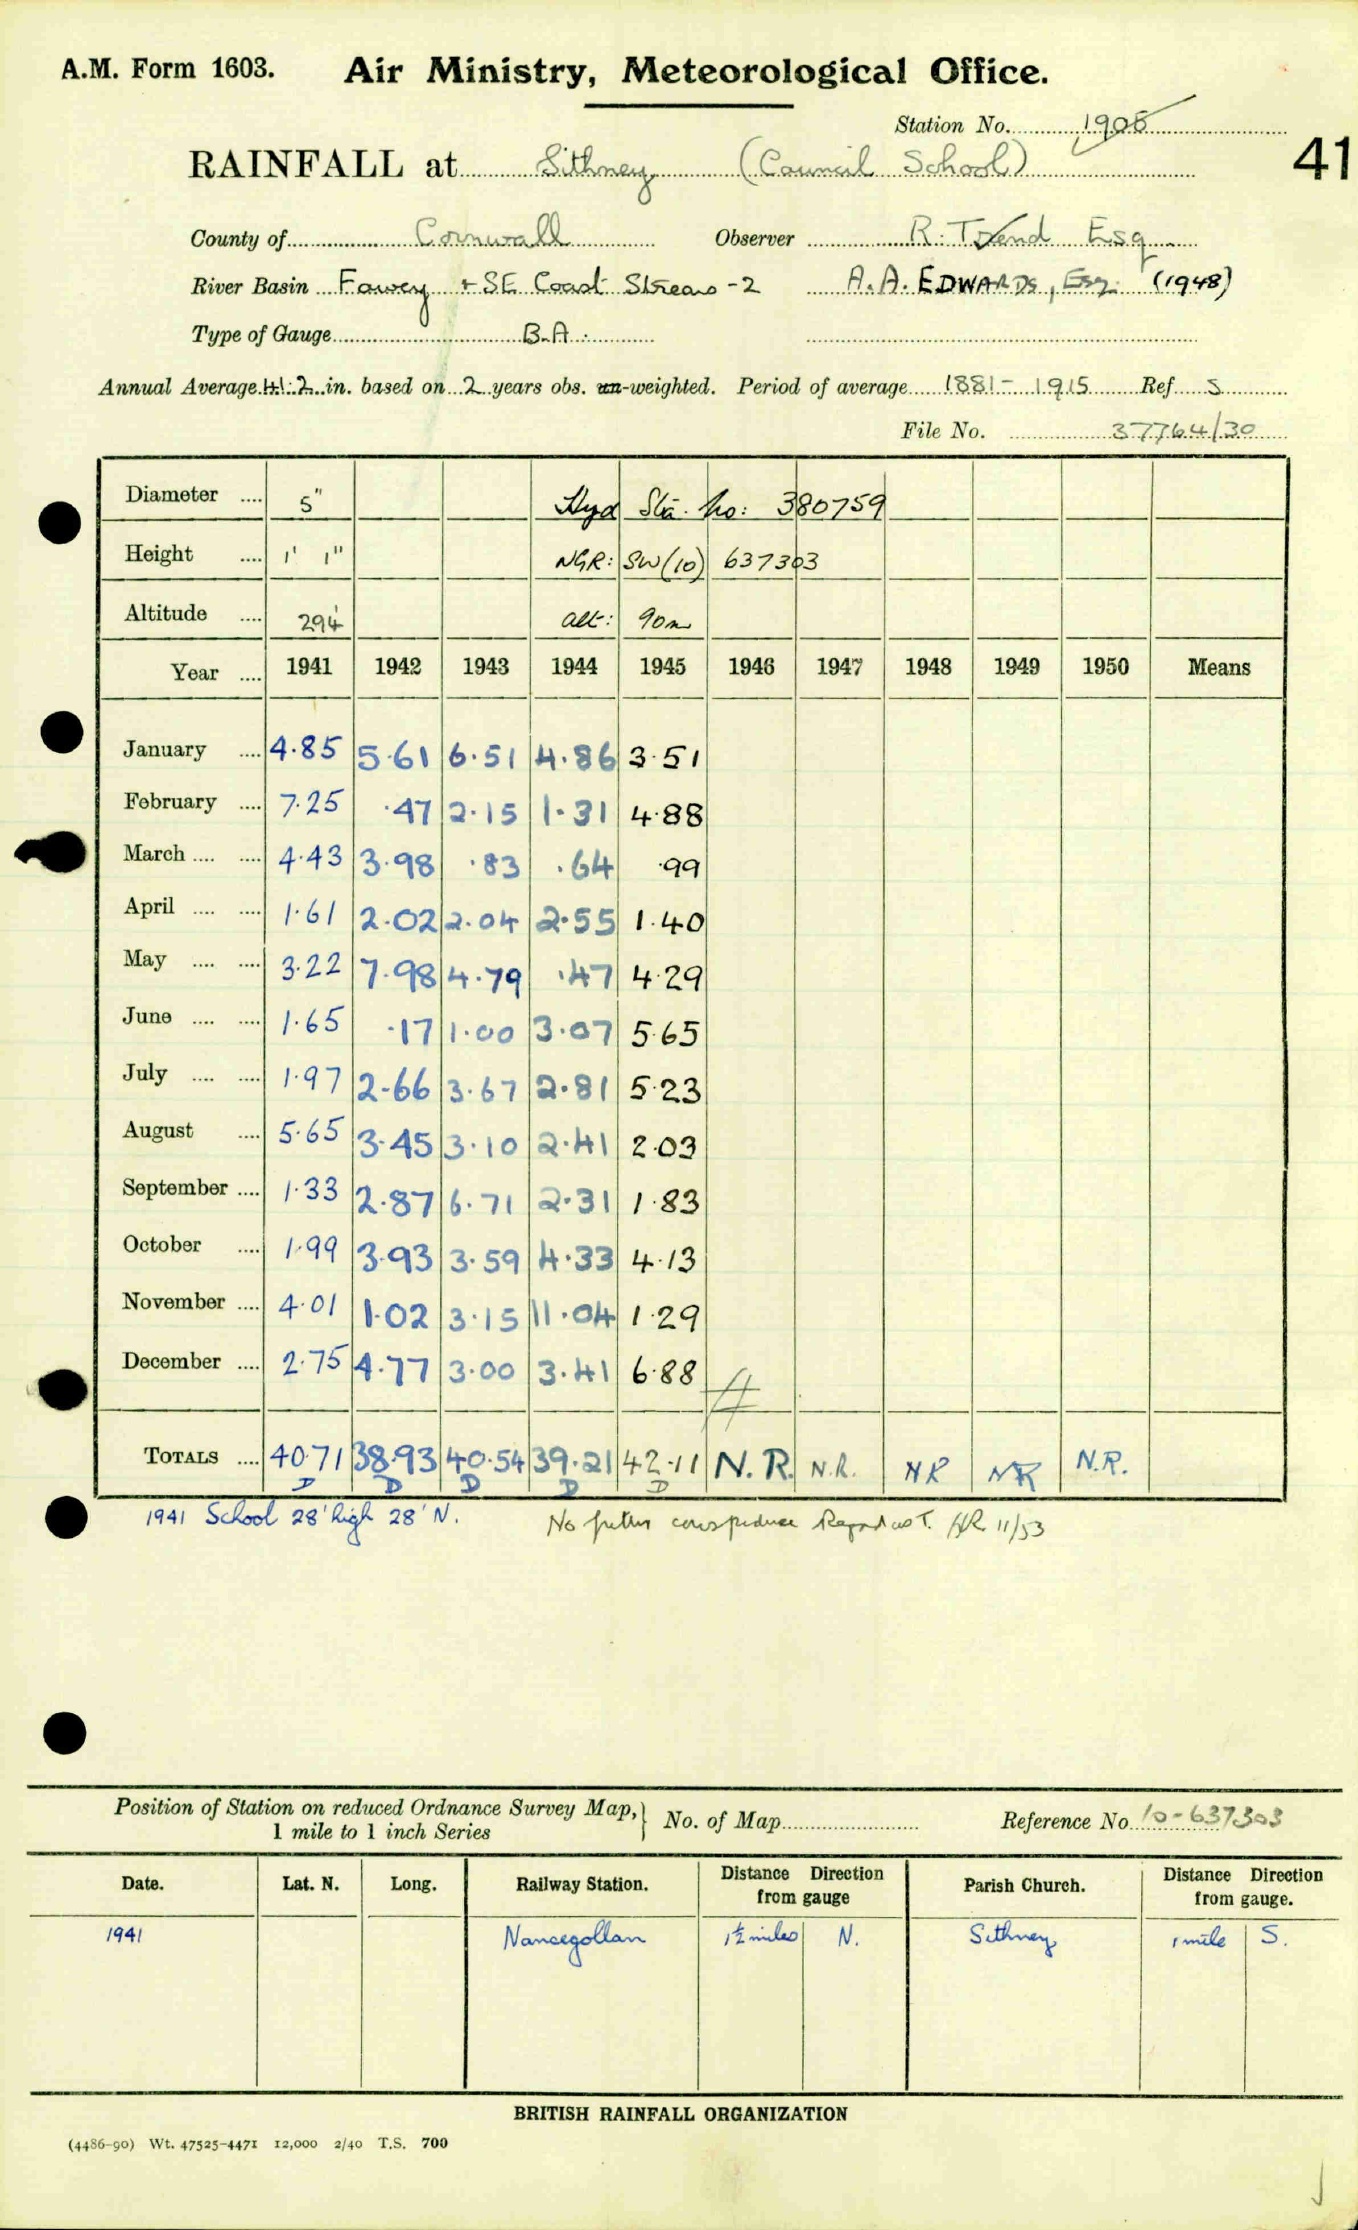 A.M. Form 1603. Air Ministry, Meteorological Office.
Station No. 1905
41
RAINFALL at Sithney (Council School)
County of Cornwall Observer R. Trend Esq
River Basin Fowey + SE Coast Streams -2 A.A. EDWARDS, Esq. (1948)
Type of Gauge B.A.
Annual Average 41.2 in. based on 2 years obs. un-weighted. Period of average 1881-1915 Ref S
File No. 37764/30
Diameter .... 5" Hyd Sta. No: 380759
Height .... 1' 1" NGR: SW(10) 637303
Altitude .... 294' alt: 90m
Year .... 1941 1942 1943 1944 1945 1946 1947 1948 1949 1950 Means
January .... 4.85 5.61 6.51 4.86 3.51
February .... 7.25 .47 2.15 1.31 4.88
March .... .... 4.43 3.98 .83 .64 .99
April .... .... 1.61 2.02 2.04 2.55 1.40
May .... .... 3.22 7.98 4.79 .47 4.29
June .... .... 1.65 .17 1.00 3.07 5.65
July .... .... 1.97 2.66 3.67 2.81 5.23
August .... 5.65 3.45 3.10 2.41 2.03
September .... 1.33 2.87 6.71 2.31 1.83
October .... 1.99 3.93 3.59 4.33 4.13
November .... 4.01 1.02 3.15 11.04 1.29
December .... 2.75 4.77 3.00 3.41 6.88
TOTALS .... 40.71 38.93 40.54 39.21 42.11 N.R. N.R. NR NR N.R.
D D D D D
1941 School 28' high 28' N. No further correspondence Regard as T. 11/53
Position of Station on reduced Ordnance Survey Map, } No. of Map Reference No 10-637303
1 mile to 1 inch Series
Date. Lat. N. Long. Railway Station. Distance Direction from gauge Parish Church. Distance Direction from gauge.
1941 Nancegollan 1½ miles N. Sithney 1 mile S.
BRITISH RAINFALL ORGANIZATION
(4486-90) Wt. 47525-4471 12,000 2/40 T.S. 700